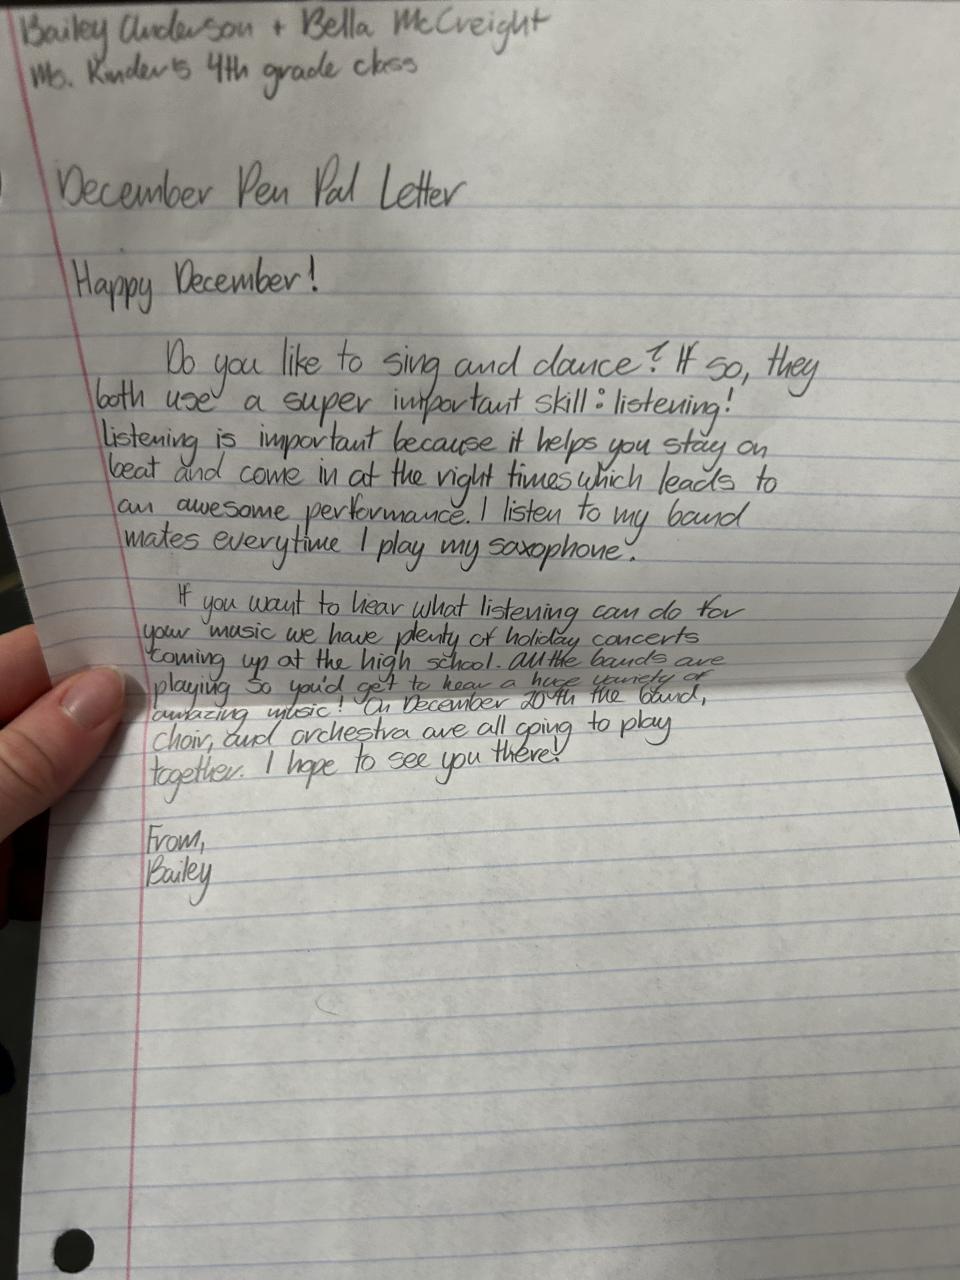 Bailey Anderson + Bella McCreight
Ms. Kinder's 4th grade class
December Pen Pal Letter
Happy December!
Do you like to sing and dance? If so, they
both use a super important skill: listening!
Listening is important because it helps you stay on
beat and come in at the right times which leads to
an awesome performance. I listen to my band
mates everytime I play my saxophone.
If you want to hear what listening can do for
your music we have plenty of holiday concerts
coming up at the high school. All the bands are
playing so you'd get to hear a huge variety of
amazing music! On December 20th the band,
choir, and orchestra are all going to play
together. I hope to see you there!
From,
Bailey